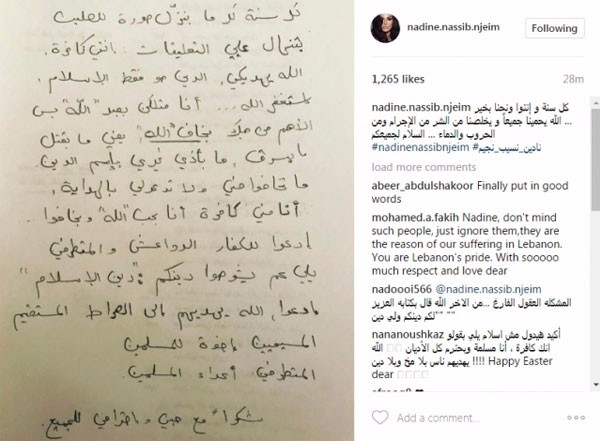 كل سنة كل ما بنزّل صورة للصلب
بتنهال عليي التعليقات : انتي كافرة.
الله يهديكي, الدين هو فقط الإسلام.
استغفر الله ... أنا متلكن بعبد "الله" بس
الأهم من هيك بخاف "الله" يعني ما بقتل
ما بسرق, ما بأذي غيري بإسم الدين
ما تخافوا مني ولا تدعولي بالهداية,
أنا مني كافرة أنا بحب "الله" وبخافو.
إدعوا للكفار الدواعش والمتطرفين
يلي عم يشوهوا دينكم "دين الإسلام"
إدعوا, الله يهديهم إلى الصراط المستقيم
المسيحيين إخوة للمسلمين
المتطرفين أعداء المسلمين
شكراً مع حبي واحترامي للجميع.
nadine.nassib.njeim
Following
1,265 likes
28m
nadine.nassib.njeim كل سنة و إنتوا ونحنا بخير
... الله يحمينا جميعاً و يخلصنا من الشر من الإجرام ومن
الحروب والدماء ... السلام لجميعكم
#nadinenassibnjeim #نادين_نسيب_نجيم
load more comments
abeer_abdulshakoor Finally put in good
words
mohamed.a.fakih Nadine, don't mind
such people, just ignore them,they are
the reason of our suffering in Lebanon.
You are Lebanon's pride. With sooooo
much respect and love dear
nadoooj566 @nadine.nassib.njeim
المشكله العقول الفارغ... من الاخر الله قال بكتابه العزيز
"" لكم دينكم ولي دين""
nananoushkaz أكيد هيدول مش اسلام يلي بقولو
انك كافرة ، أنا مسلمة وبحترم كل الأديان الله
يهديهم ناس بلا مخ وبلا دين !!!! Happy Easter
dear
Add a comment...